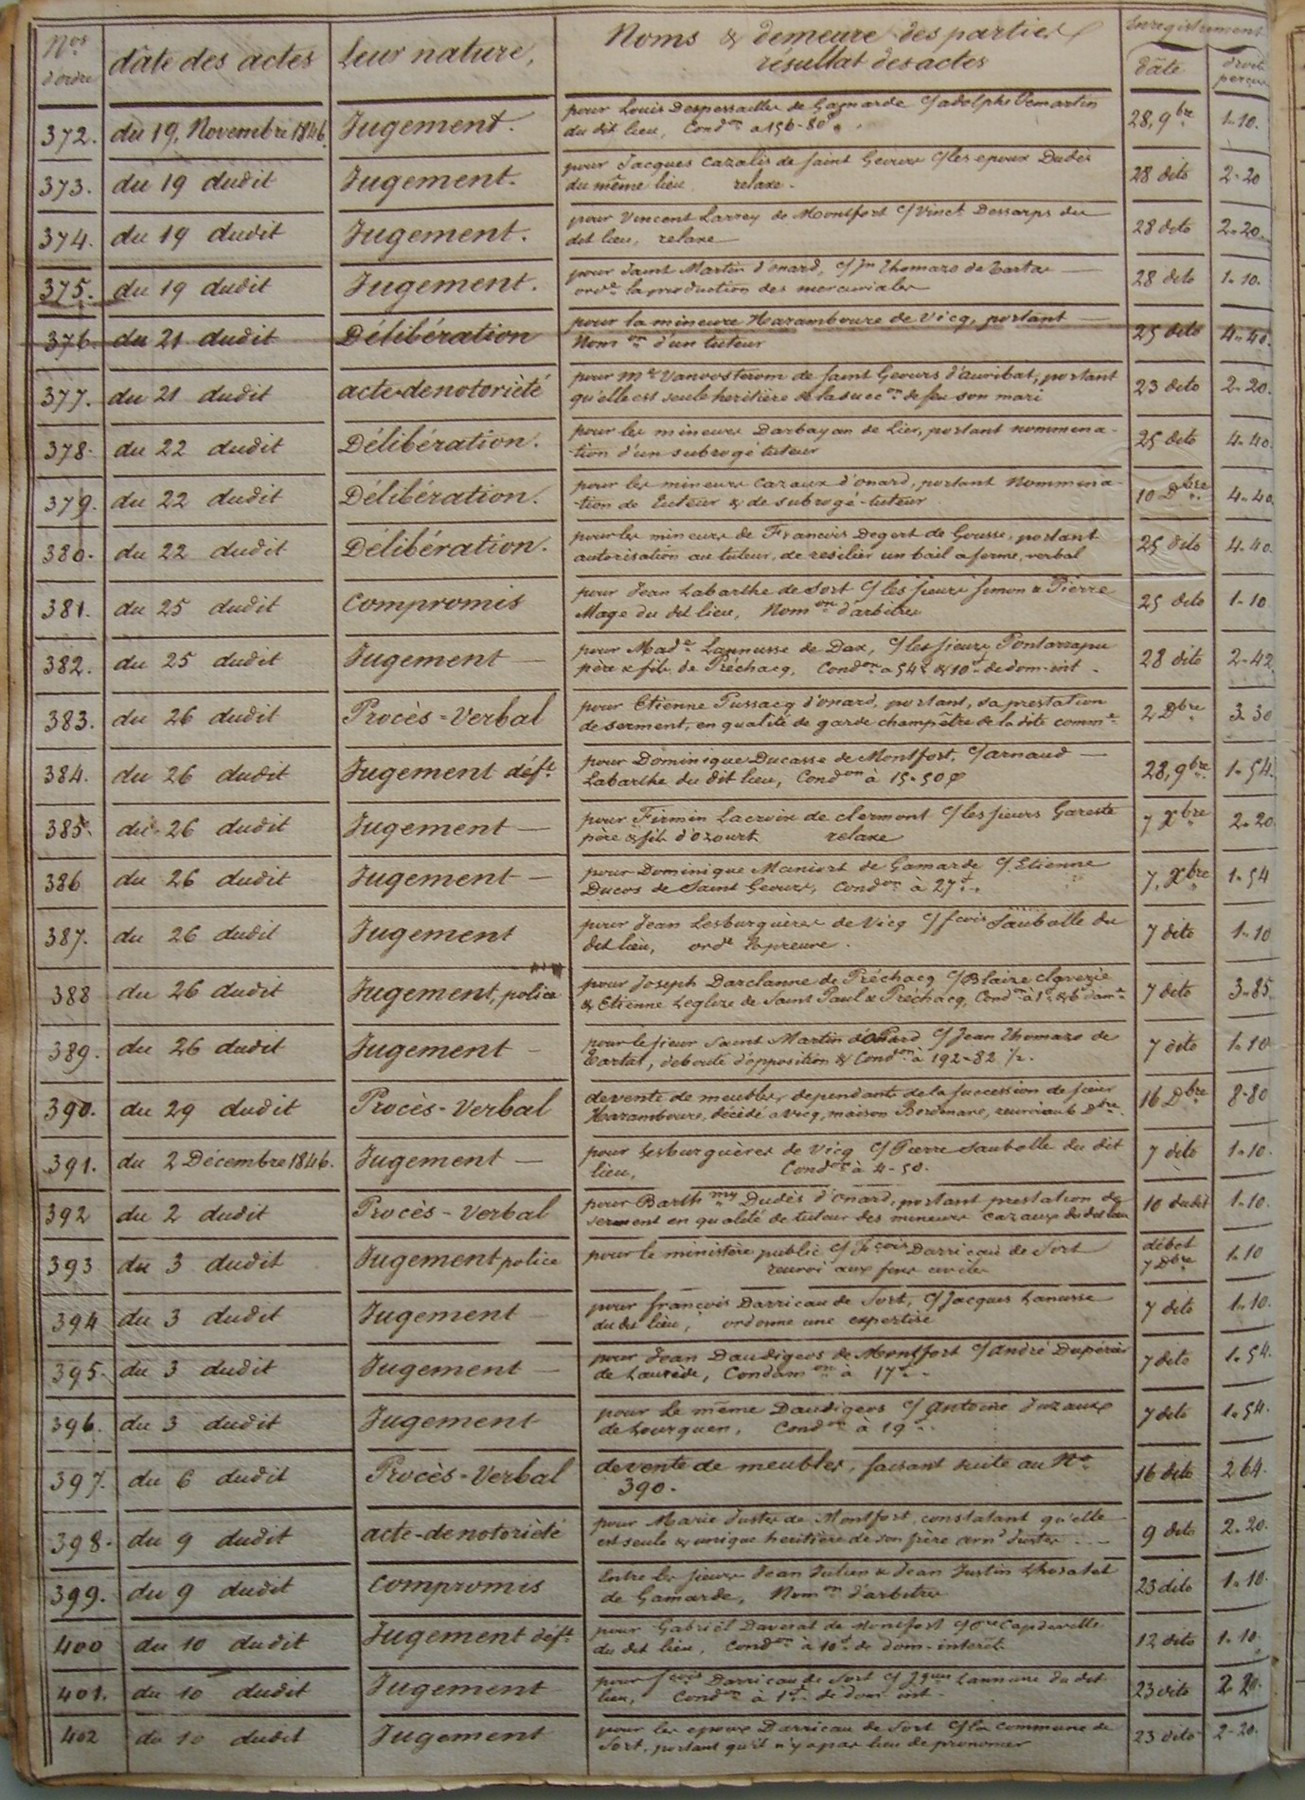 Nos d'ordre | date des actes | leur nature, | Noms & demeure des parties résultat des actes | Enregistrement date | droits perçus
372. | du 19, Novembre 1846. | Jugement. | pour Louis Despessailles de Gamarde c/ adolphe Demartin | 28, 9bre | 1-10.
du dit lieu, Condon a 156-80c
373. | du 19 dudit | Jugement. | pour Jacques Cazalis de saint Geours c/ les epoux Dudès | 28 dito | 2-20
du même lieu relaxe.
374. | du 19 dudit | Jugement. | pour Vincent Larrey de Montfort c/ Vinct Dessarps du | 28 dito | 2-20
dit lieu, relaxe
375. | du 19 dudit | Jugement. | pour Saint Martin d'onard, c/ Jn Thomazo de Tartas | 28 dito | 1-10.
orde la production des mercuriales
376. | du 21 dudit | Délibération | pour la mineure Haramboure de Vicq, portant | 25 dito | 4-40.
Nomon d'un tuteur
377. | du 21 dudit | acte-de notoriété | pour Me Vanoosterom de saint Geours d'auribat, portant | 23 dito | 2-20.
qu'elle est seule heritière de la succon de feu son mari
378. | du 22 dudit | Délibération. | pour les mineurs Darbayan de Lier, portant nommena- | 25 dito | 4-40
-tion d'un subrogé tuteur
379. | du 22 dudit | Délibération. | pour les mineurs cazaux d'onard, portant Nommina- | 10 Dbre | 4-40
-tion de tuteur & de subrogé-tuteur
380. | du 22 dudit | Délibération. | pour les mineurs de Francois Degert de Gousse, portant | 25 dito | 4-40.
autorisation au tuteur, de resilier un bail a ferme, verbal
381. | du 25 dudit | Compromis | pour Jean Labarthe de Sort c/ les sieurs Simon & Pierre | 25 dito | 1-10
Mage du dit lieu, Nomon d'arbitres
382. | du 25 dudit | Jugement | pour Made Lannusse de Dax, c/ les sieurs | 28 dito | 2-42
père & fils de Préchacq, Condon a 54f & 10f de dom-int.
383. | du 26 dudit | Procès-Verbal | pour Etienne Pussacq d'onard, portant, sa prestation | 2 Dbre | 3-30
de serment, en qualité de garde champêtre de la dite comme
384. | du 26 dudit | Jugement déft | pour Dominique Ducasse de Montfort, c/ arnaud | 28, 9bre | 1-54.
Labarthe du dit lieu, Condon à 15-50c
385. | du 26 dudit | Jugement | pour Firmin Lacroix de clermont c/ les sieurs Gareste | 7 Xbre | 2-20
père & fils d'ozourt relaxe
386 | du 26 dudit | Jugement | pour Dominique Maniort de Gamarde c/ Etienne | 7, Xbre | 1-54
Ducos de Saint Geours, Condon à 27f.
387. | du 26 dudit | Jugement | pour Jean Lesburguères de Vicq c/ fcois Sauballe du | 7 dito | 1-10
dit lieu, orde la preuve.
388 | du 26 dudit | Jugement, police | pour Joseph Darclanne de Préchacq c/ Blaise claverie | 7 dito | 3-85.
& Etienne Leglize de Saint Paul & Préchacq, Condon à 1f & 6f dam-
389. | du 26 dudit | Jugement | pour le sieur Saint Martin d'Onard c/ Jean Thomazo de | 7 dito | 1-10
Tartas, deboute d'opposition & Condon à 192-82
390. | du 29 dudit | Procès-Verbal | de vente de meubles, dependants de la succession de sieur | 16 Dbre | 8-80
Haramboure, décédé a vicq, maison Bordenave, renvoi au 6 Dbre.
391. | du 2 Décembre 1846. | Jugement | pour Lesburguères de Vicq c/ Pierre Sauballe du dit | 7 dito | 1-10.
lieu, Condon à 4-50.
392 | du 2 dudit | Procès-Verbal | pour Barthmy Dudès d'Onard, portant prestation de | 10 dudit | 1-10.
serment en qualité de tuteur des mineurs cazaux du dit lieu
393 | du 3 dudit | Jugement police | pour le ministère public c/ fcois Darricau de Sort | débet 7 Dbre | 1-10
renvoi aux fins civiles
394 | du 3 dudit | Jugement | pour françois Darricau de Sort, c/ Jacques Lanusse | 7 dito | 1-10.
du dit lieu, ordonne une expertise
395. | du 3 dudit | Jugement | pour Jean Daudigeos de Montfort c/ André Dupérier | 7 dito | 1-54.
de Laurède, Condamon à 17f.
396. | du 3 dudit | Jugement | pour le même Daudigeos c/ Antoine Juzaux | 7 dito | 1-54.
de Lourquen, Condon à 19f.
397. | du 6 dudit | Procès-Verbal | de vente de meubles, faisant suite au No | 16 dito | 2 64.
390.
398. | du 9 dudit | acte-de notoriété | pour Marie Justes de Montfort, constatant qu'elle | 9 dito | 2-20.
est seule & unique heritière de son père arnd Justes
399. | du 9 dudit | Compromis | Entre les sieurs Jean Julien & Jean Justin Lhosatel | 23 dito | 1-10.
de Gamarde, Nomon d'arbitres
400 | du 10 dudit | Jugement déft | pour Gabriel Daverat de Montfort c/ Capdeville | 12 dito | 1-10.
du dit lieu, Condon à 10f de dom-interêts
401. | du 10 dudit | Jugement | pour fcois Darricau de Sort c/ Jques Lannusse du dit | 23 dito | 2-20.
lieu, Condon à 1f de dom int.
402 | du 10 dudit | Jugement | pour les epoux Darricau de Sort c/ la commune de | 23 dito | 2-20.
Sort, portant qu'il n'y a pas lieu de prononcer